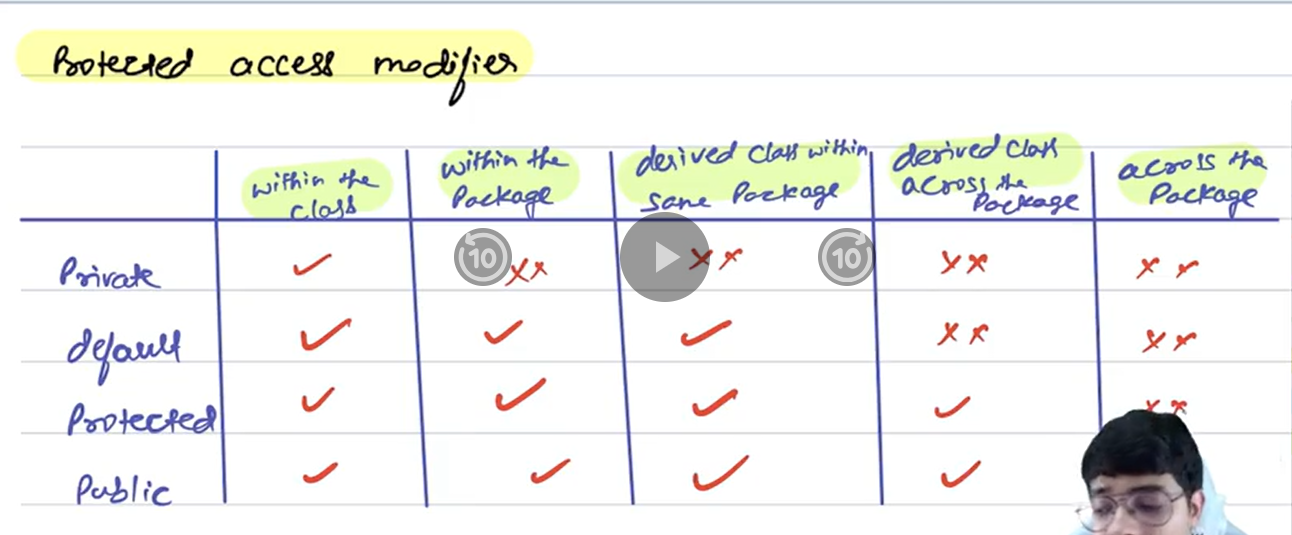 Protected access modifier
within the class
within the Package
derived class within same Package
derived class across the Package
across the Package
10
10
Private ✓ ×× ×× ×× ××
default ✓ ✓ ✓ ×× ××
Protected ✓ ✓ ✓ ✓ ××
Public ✓ ✓ ✓ ✓